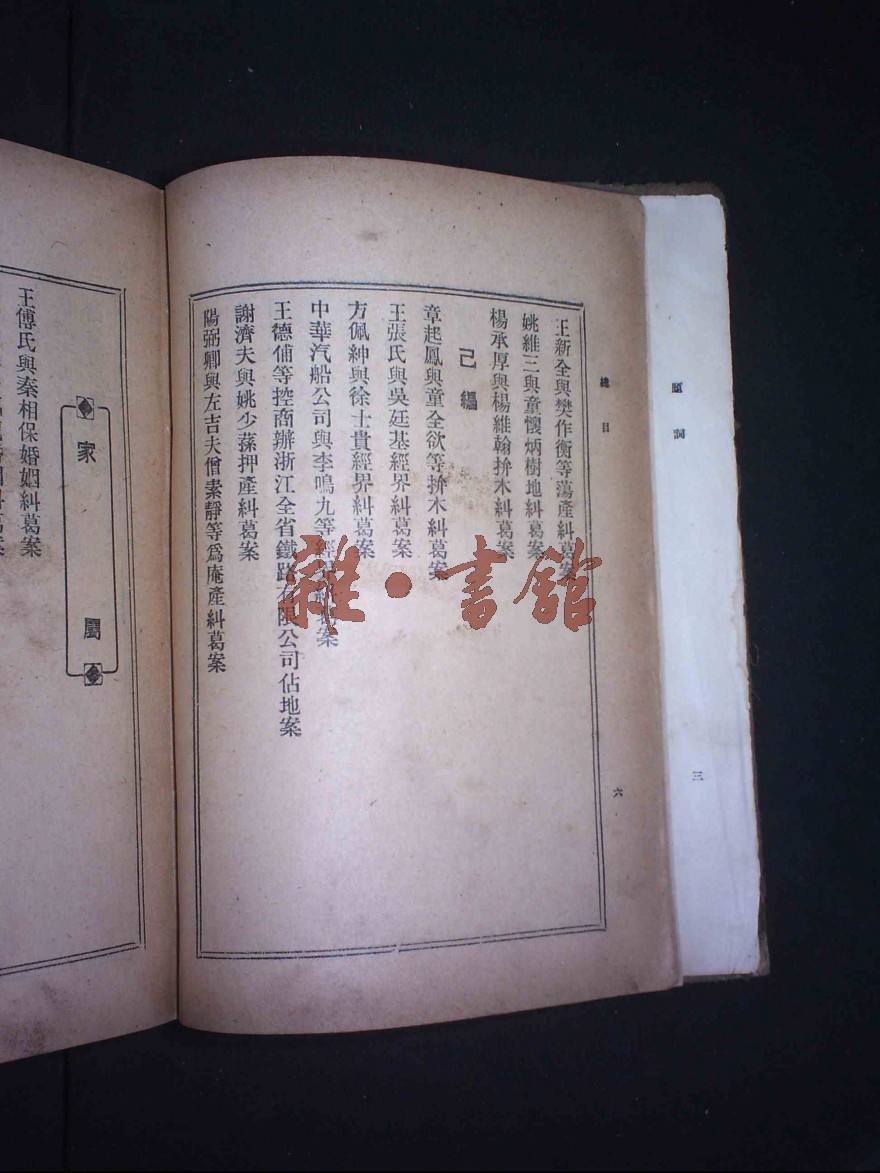 題詞
三
總目
六
王新全與樊作衡等蕩產糾葛案
姚維三與童懷炳樹地糾葛案
楊承厚與楊維翰拚木糾葛案
己編
章起鳳與童全欲等拚木糾葛案
王張氏與吳廷基經界糾葛案
方佩紳與徐士貴經界糾葛案
中華汽船公司與李鳴九等經界糾葛案
王德俌等控商辦浙江全省鐵路有限公司佔地案
謝濟夫與姚少蓀押產糾葛案
陽弼卿與左吉夫僧素靜等為庵產糾葛案
家屬
王傅氏與秦相保婚姻糾葛案
雜·書館